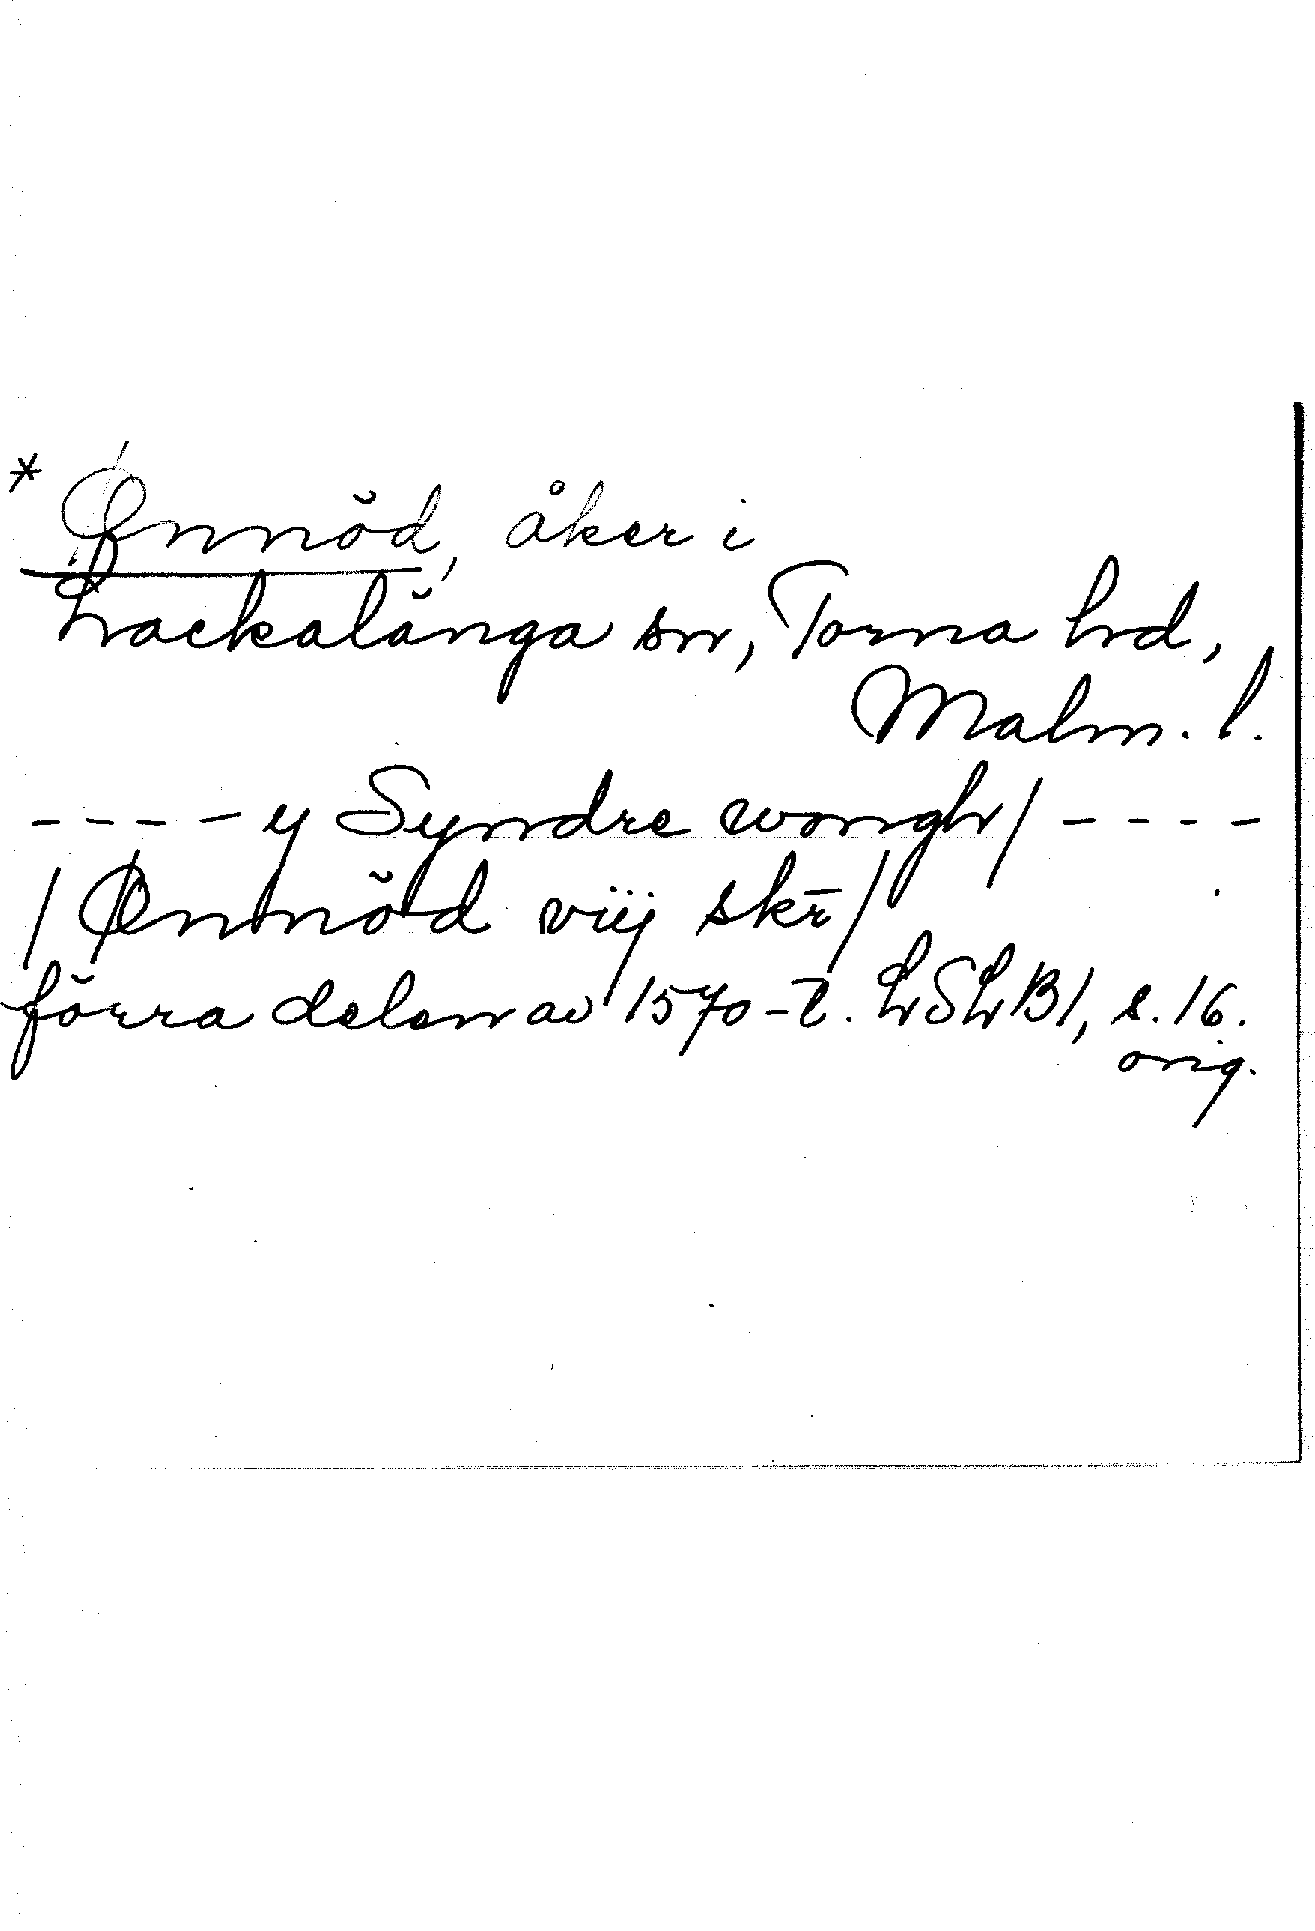 * Ønnöd, åker i
Lackalänga sn, Torna hd,
Malm. l.
- - - - y Syndre wongh / - - - -
/ Ønnöd viij skr̄ /
förra delen av 1570-t. LSLB1, s. 16.
orig.